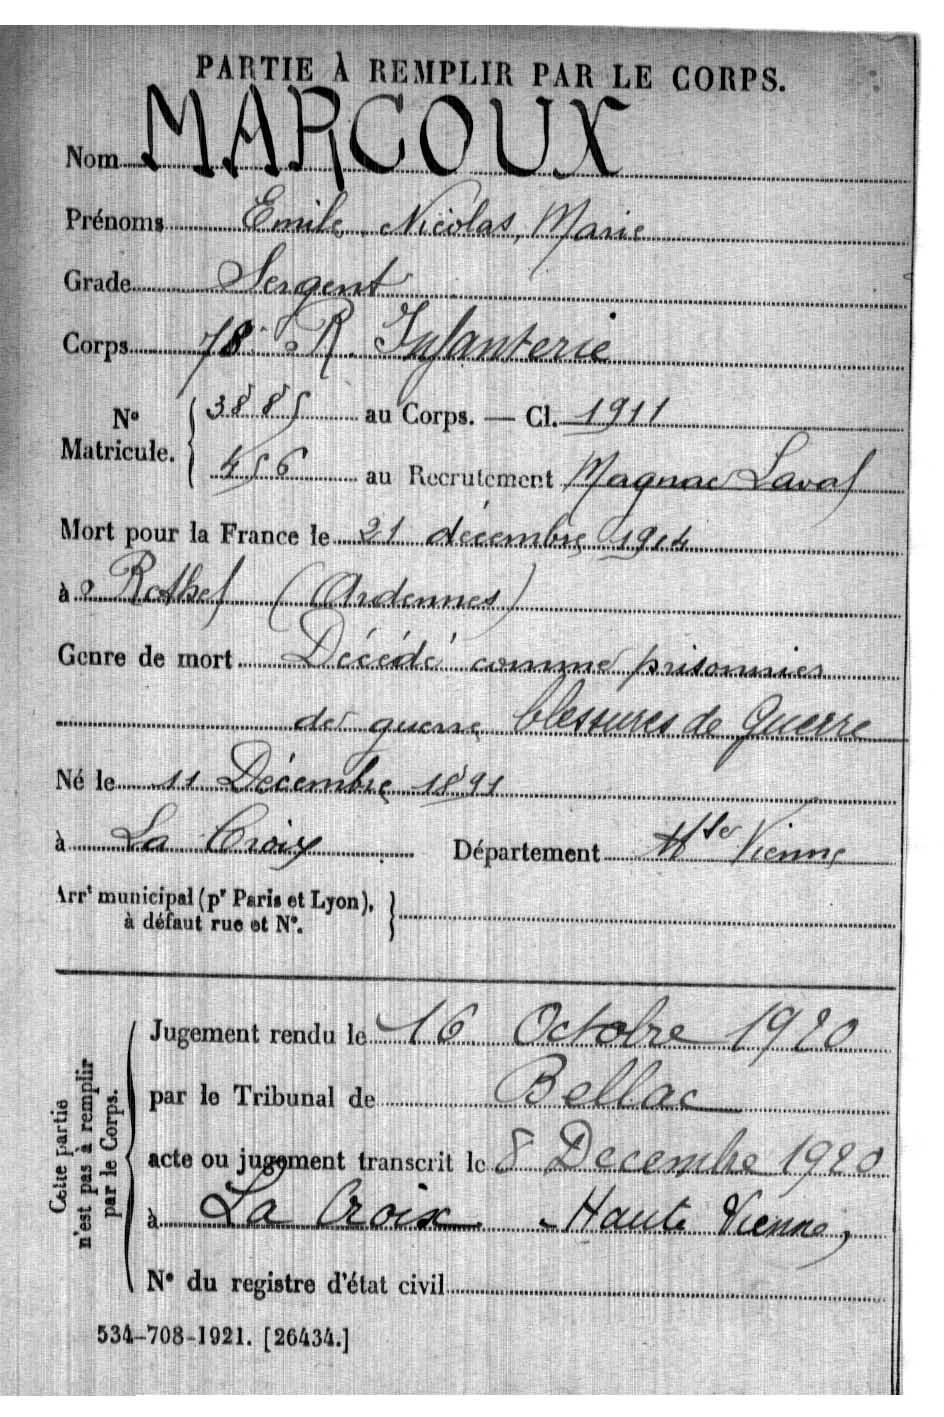 PARTIE À REMPLIR PAR LE CORPS.
Nom MARCOUX
Prénoms Emile, Nicolas, Marie
Grade Sergent
Corps 78e R. Infanterie
N° Matricule. { 3885 au Corps. — Cl. 1911
456 au Recrutement Magnac Laval
Mort pour la France le 21 décembre 1914
à Rethel (Ardennes)
Genre de mort Décédé comme prisonnier
de guerre blessures de Guerre
Né le 11 Décembre 1891
à La Croix Département Hte Vienne
Arrt municipal (pr Paris et Lyon), à défaut rue et N°. }
Cette partie n'est pas à remplir par le Corps. {
Jugement rendu le 16 Octobre 1920
par le Tribunal de Bellac
acte ou jugement transcrit le 8 Decembre 1920
à La Croix - Haute Vienne,
N° du registre d'état civil
534-708-1921. [26434.]